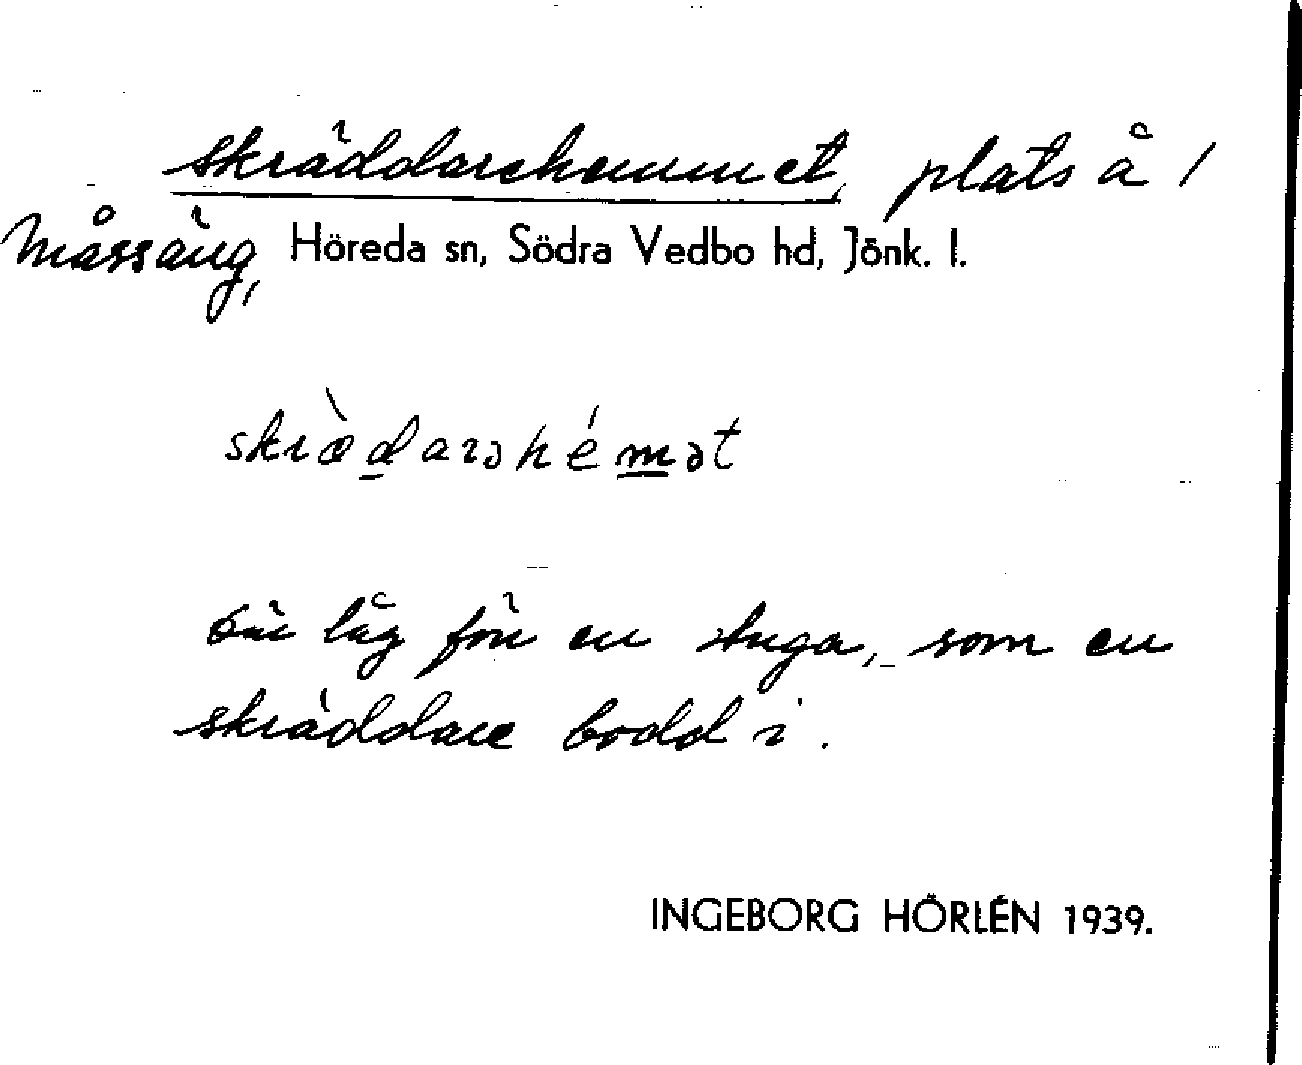 Skräddarehemmet, plats å /
Mässäng, Höreda sn, Södra Vedbo hd, Jönk. l.
skræ̀darəhémət
där låg förr en stuga, som en
skräddare bodd i.
INGEBORG HÖRLÉN 1939.